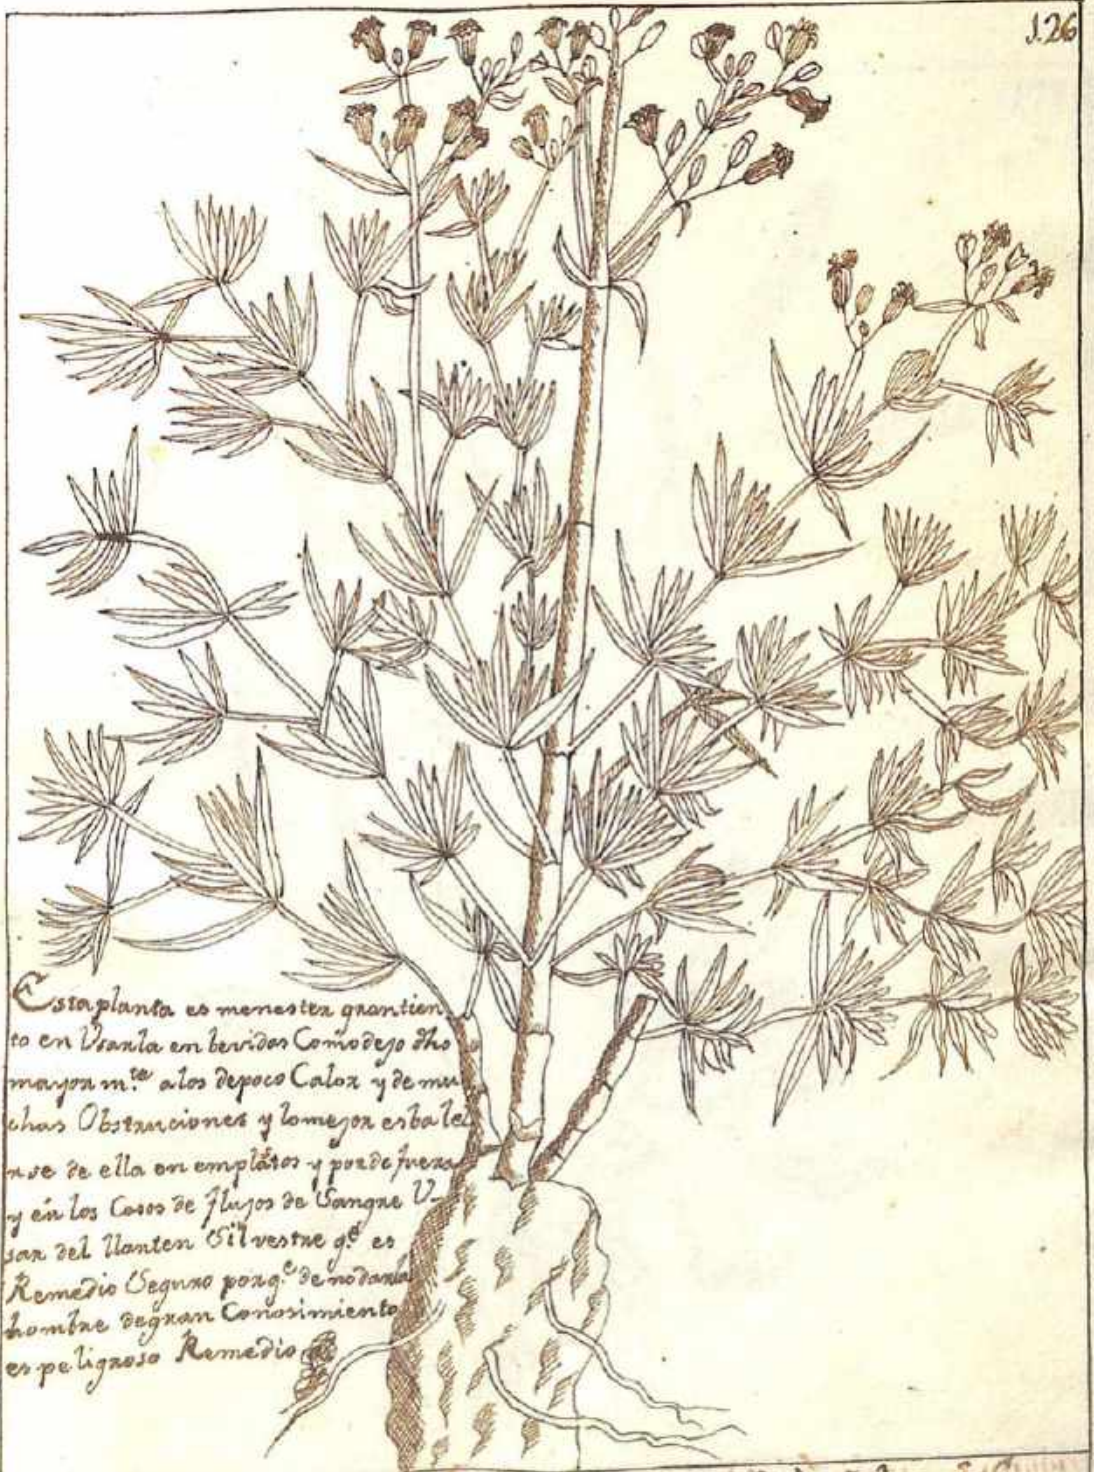 126
Esta planta es menester gran tien
to en Usarla en bevidas Como dejo dho
mayor m.te a los de poco Calor y de mu
chas Obstruciones y lo mejor es bale
rse de ella en emplastos y por de fuera
y en los Casos de flujos de Sangre U-
sar del llanten Silvestre q.e es
Remedio Seguro por q.e de no darla
hombre de gran Conosimiento
es peligroso Remedio